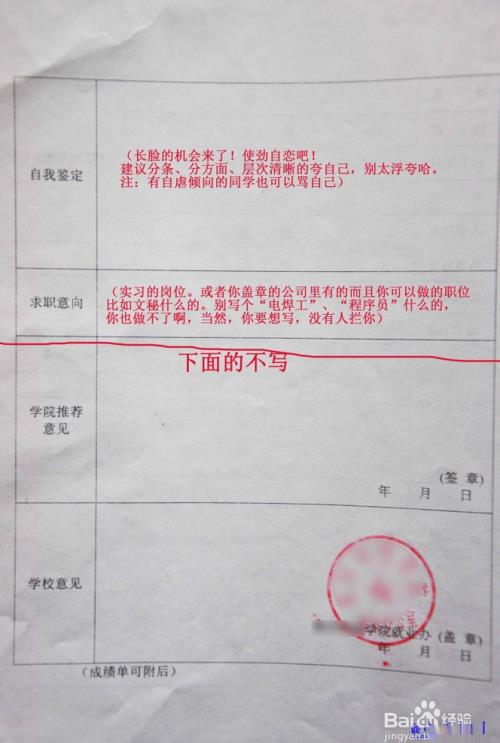 自我鉴定
（长脸的机会来了！使劲自恋吧！
建议分条、分方面、层次清晰的夸自己，别太浮夸哈。
注：有自虐倾向的同学也可以骂自己）
求职意向
（实习的岗位。或者你盖章的公司里有的而且你可以做的职位
比如文秘什么的。别写个“电焊工”、“程序员”什么的，
你也做不了啊，当然，你要想写，没有人拦你）
下面的不写
学院推荐
意见
（签 章）
年 月 日
学校意见
学院就业办（盖 章）
年 月 日
（成绩单可附后）
Baidu经验
jingyan.b